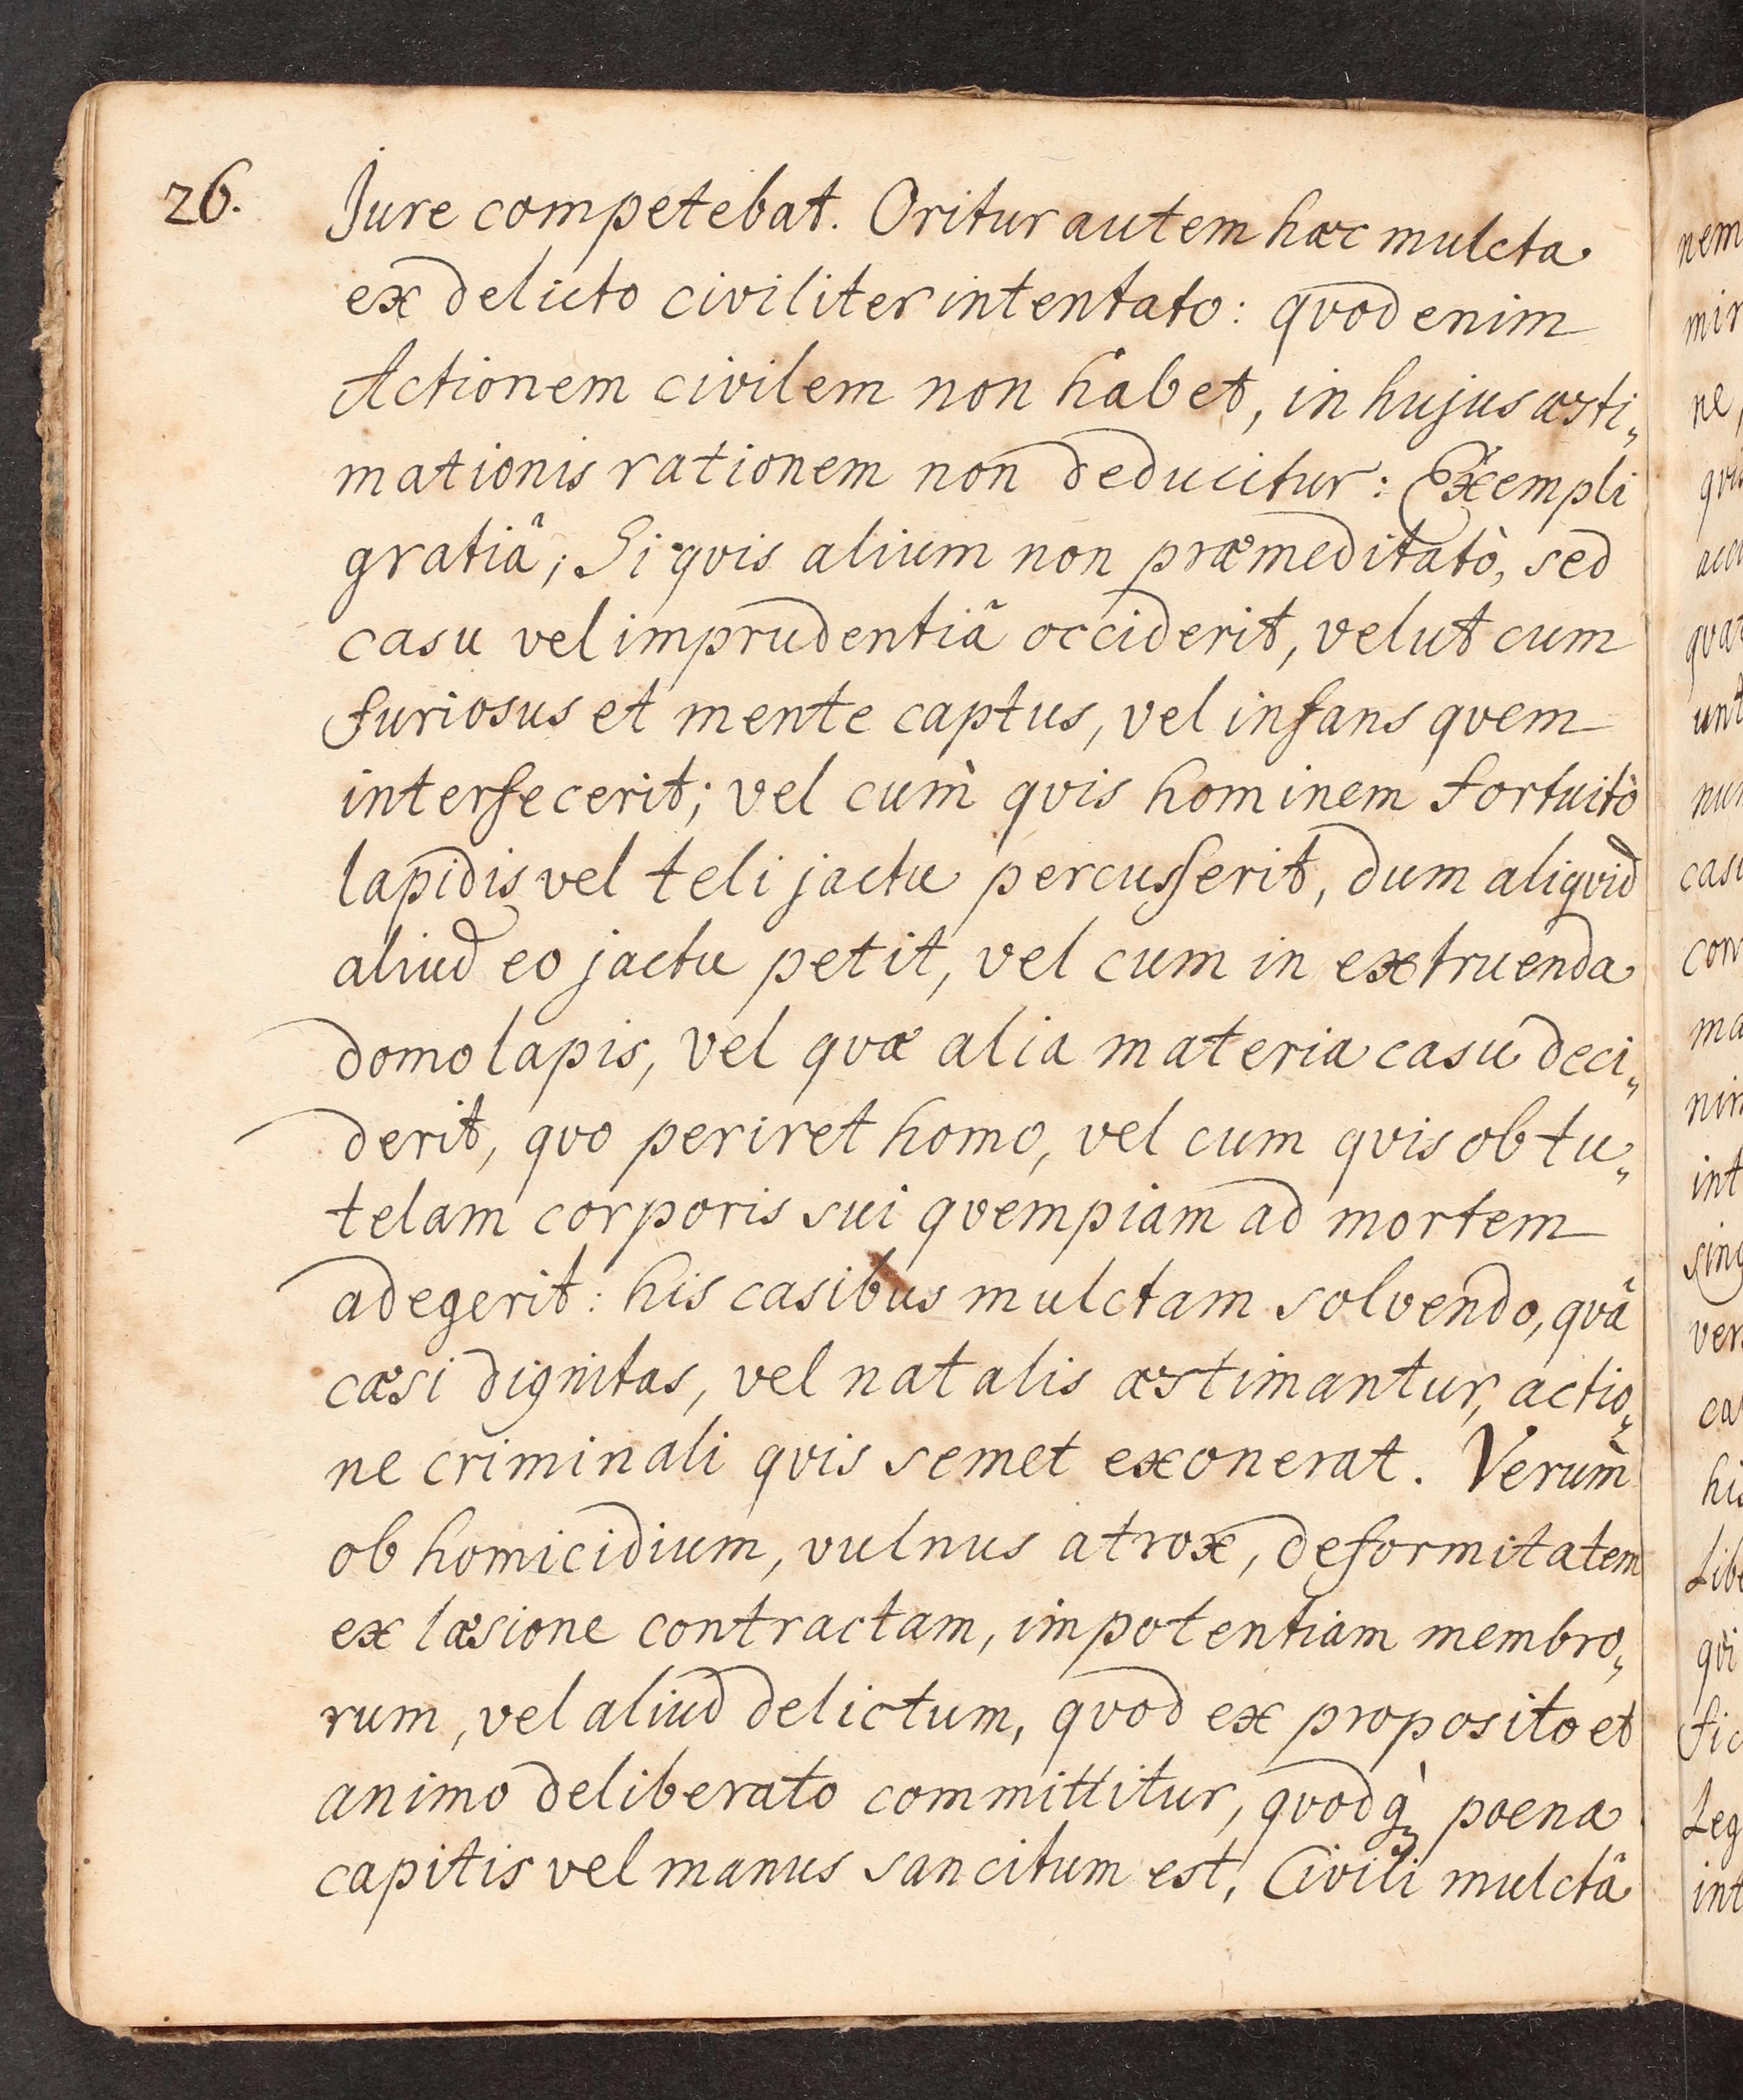 26. Jure competebat. Oritur autem hæc mulcta
ex delicto civiliter intentato: qvod enim
Actionem civilem non habet, in hujus æsti„
mationis rationem non deducitur: Exempli
gratiâ; Si qvis alium non præmeditatò, sed
casu vel imprudentiâ occiderit, velut cum
furiosus et mente captus, vel infans qvem
interfecerit; vel cum̀ qvis hominem fortuitò
lapidis vel teli jactu percusserit, dum aliqvid
aliud eo jactu petit, vel cum in extruenda
domo lapis, vel qvæ alia materia casu deci„
derit, qvo periret homo, vel cum qvis ob tu„
telam corporis sui qvempiam ad mortem
adegerit: his casibus mulctam solvendo, qvâ
cæsi dignitas, vel natalis æstimantur, actio„
ne criminali qvis semet exonerat. Verum̀
ob homicidium, vulnus atrox, deformitatem
ex læsione contractam, impotentiam membro„
rum, vel aliud delictum, qvod ex proposito et
animo deliberato committitur, qvodq̀ꝫ poena
capitis vel manus sancitum est, Civili mulctâ
nem
mir
ne,
qvi
acc
qvæ
unt
num
casu
con
ma
nim
int
sing
ver
ca
his
Libe
qvi
fic
Leg
int